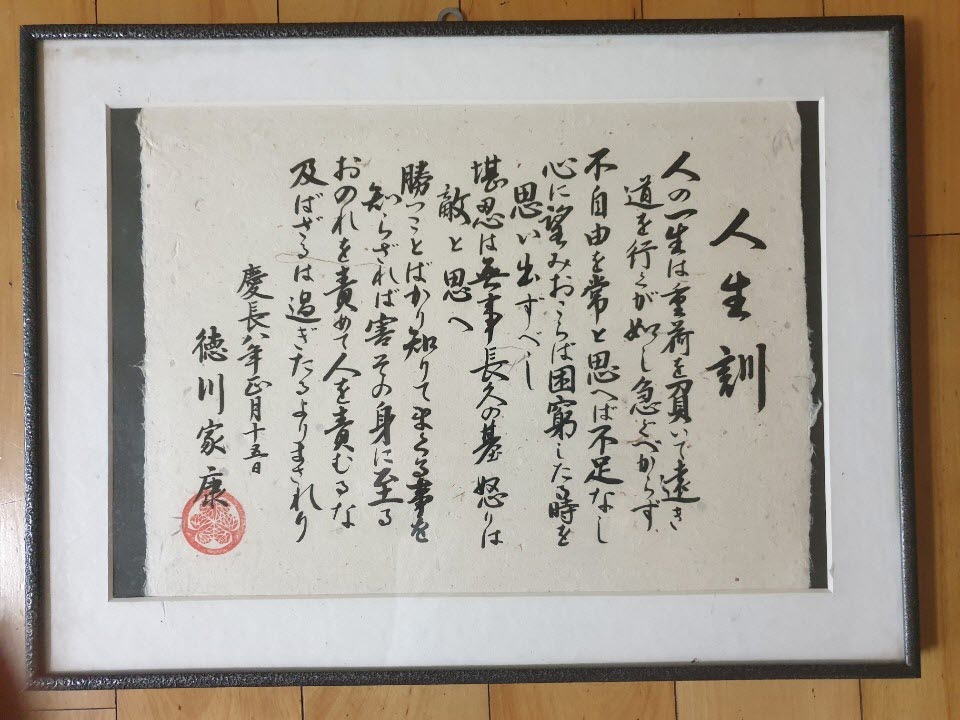 人生訓
人の一生は重荷を負いて遠き
道を行くが如し急ぐべからず
不自由を常と思へば不足なし
心に望みおこらば困窮したる時を
思い出すべし
堪忍は無事長久の基怒りは
敵と思へ
勝つことばかり知りてまくる事を
知らざれば害その身に至る
おのれを責めて人を責むるな
及ばざるは過ぎたるよりまされり
慶長八年正月十五日
徳川家康